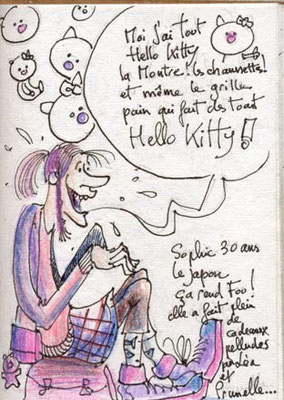 Moi j'ai tout
Hello Kitty
la Montre. les chaussettes.
et même le grille
pain qui fait des toast
Hello Kitty !
Sophie 30 ans
le japon
ça rend Foo !
elle a fait plein
de
cadeaux
pelludas
et
prunelle...